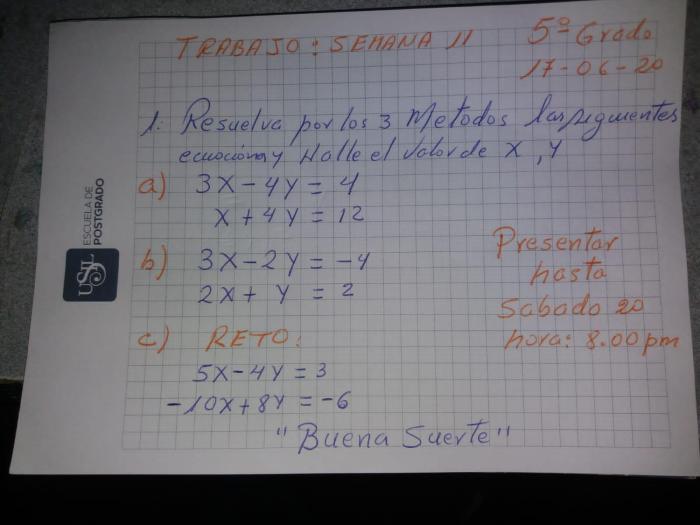 TRABAJO: SEMANA 11
5º Grado
17-06-20
1. Resuelva por los 3 Metodos las siguientes
ecuaciones y Halle el valor de X, Y
a) 3X - 4Y = 4
X + 4Y = 12
b) 3X - 2Y = -4
2X + Y = 2
Presentar
hasta
Sabado 20
hora: 8.00 pm
c) RETO:
5X - 4Y = 3
-10X + 8Y = -6
"Buena Suerte"
USIL
ESCUELA DE
POSTGRADO